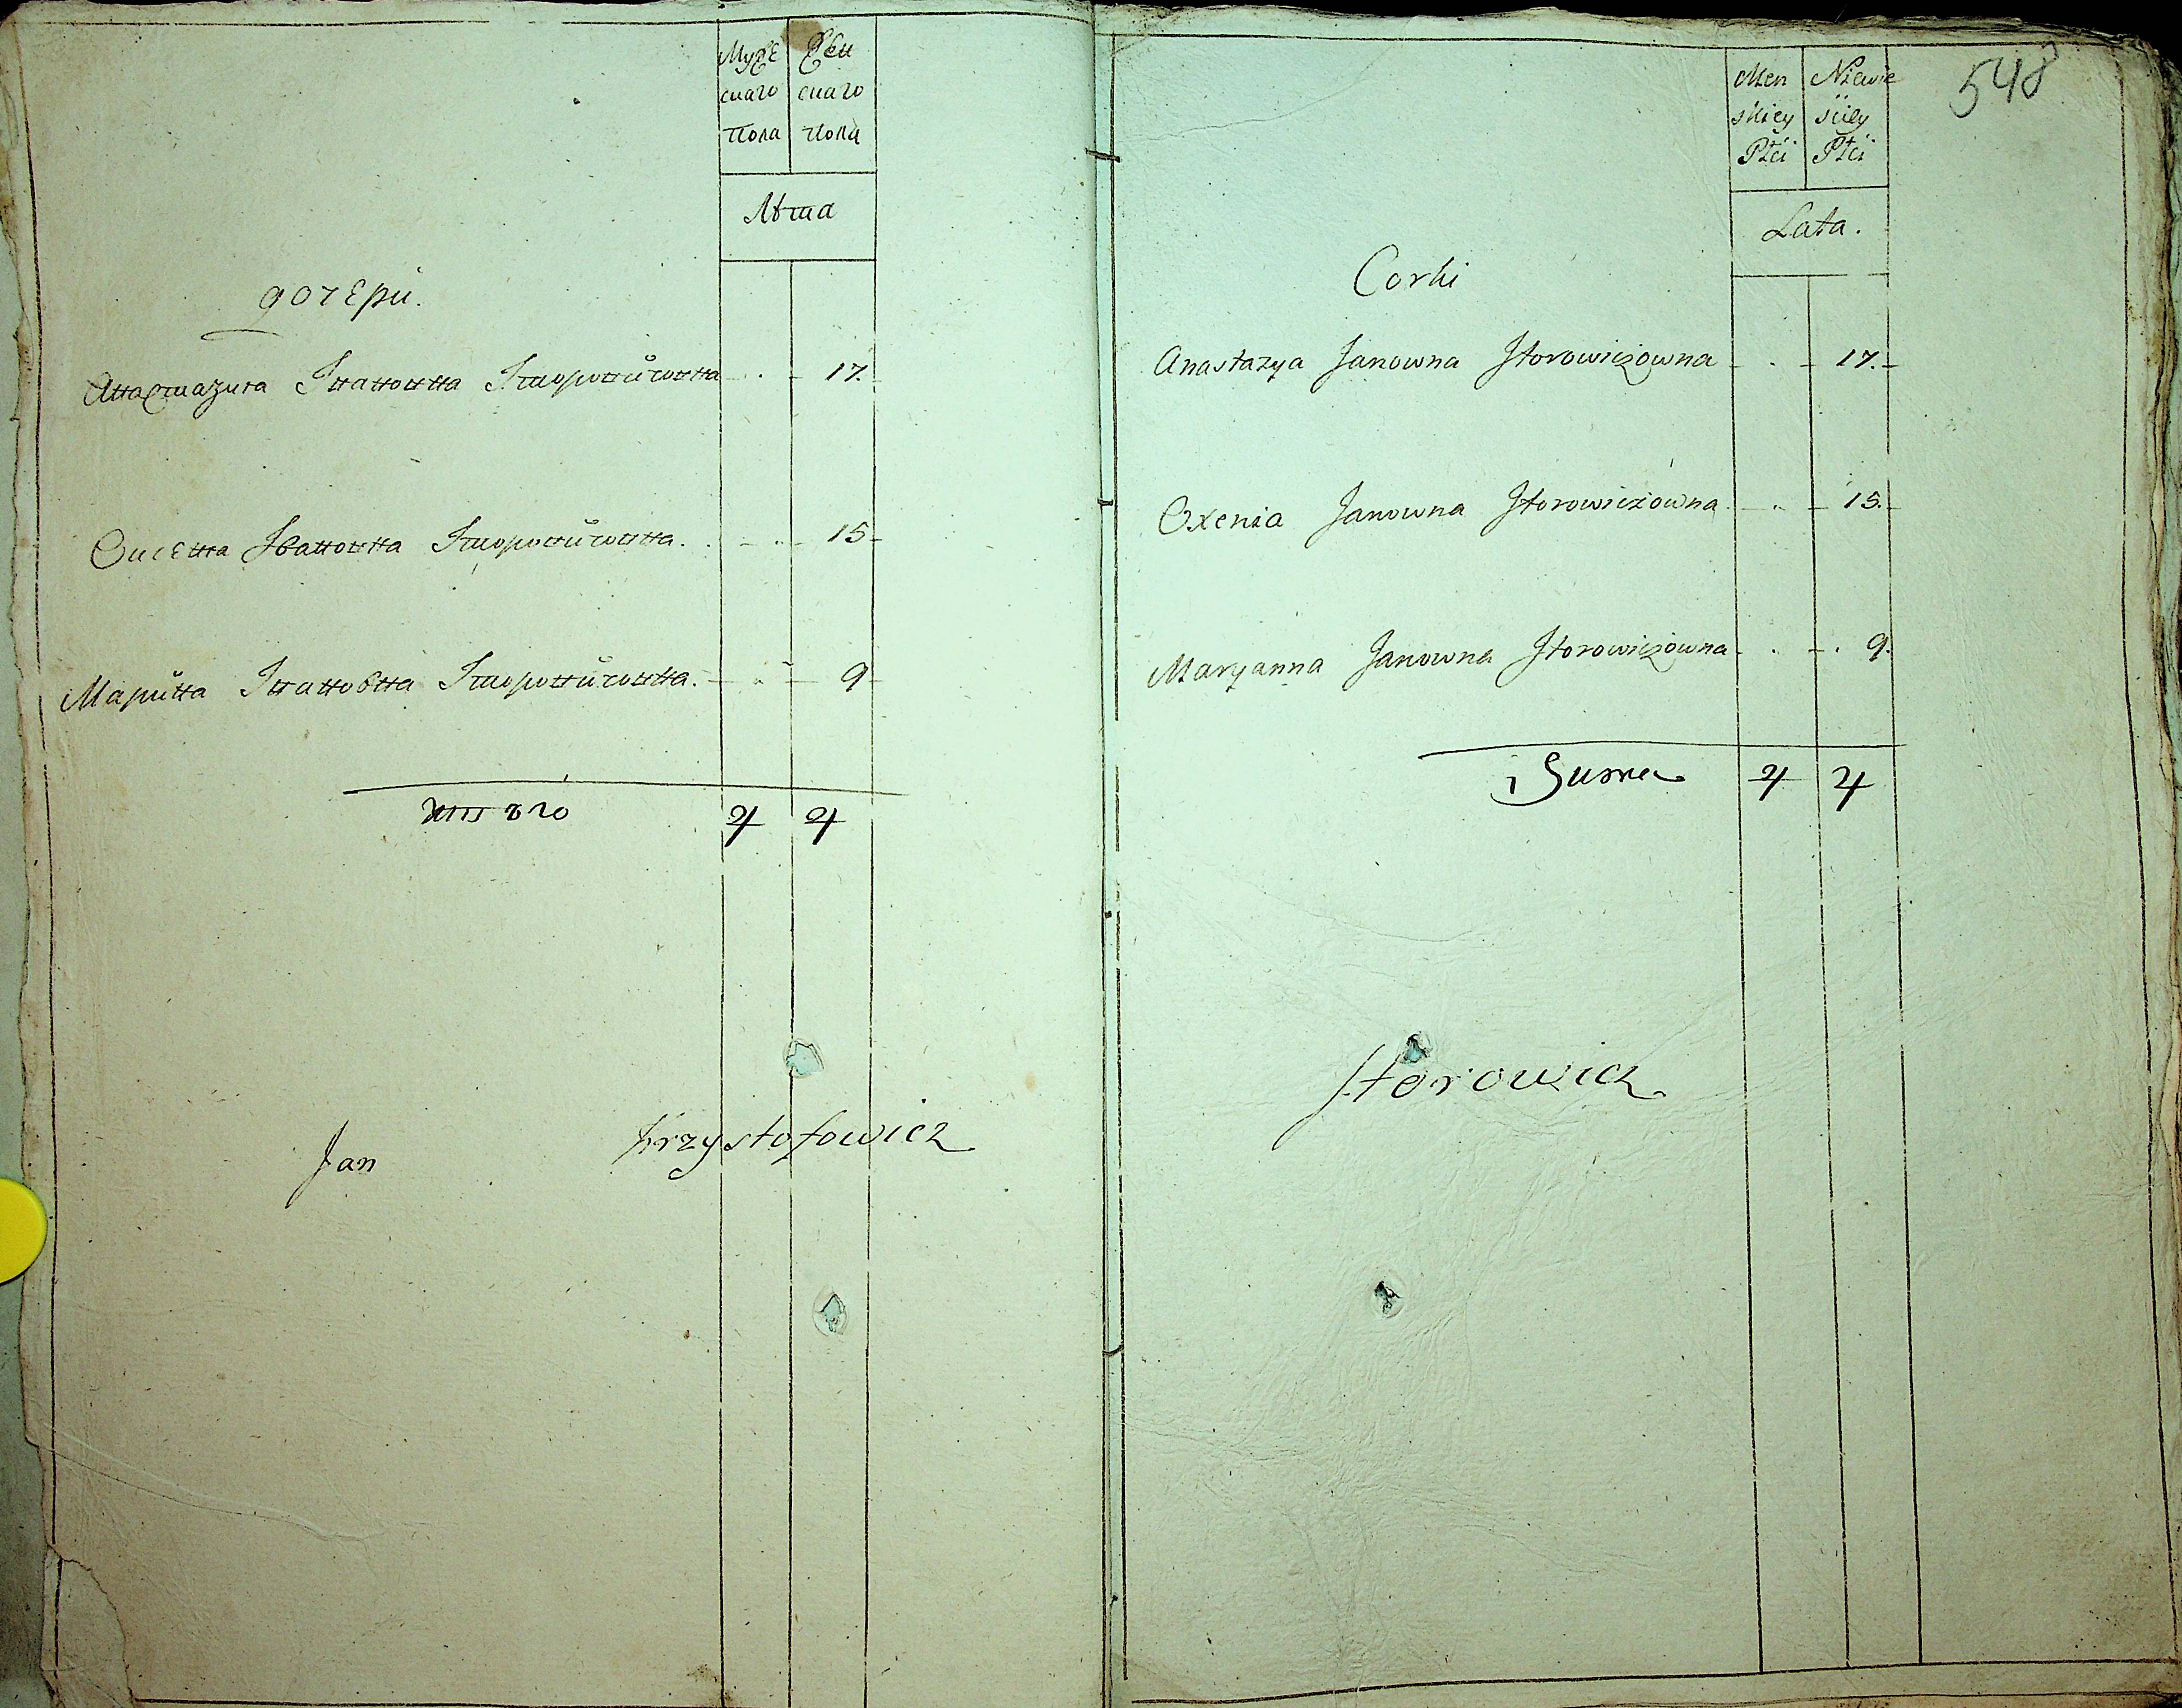 Муже Жен
скаго скаго
пола пола
Лѣта
дочери.
Анастазиа Ивановна Иторовичовна . 17.
Оксеня Ивановна Иторовичовна. 15
Марийна Ивановна Иторовичовна. 9
итого 4 4
Jan Krzysztofowicz
548
Men Niewie
skiey sciey
Płci Płci
Lata.
Corki
Anastazya Janowna Jtorowiczowna . 17.
Oxenia Janowna Jtorowiczowna. 15.
Maryanna Janowna Jtorowiczowna . 9.
Suma 4 4
Jtorowicz